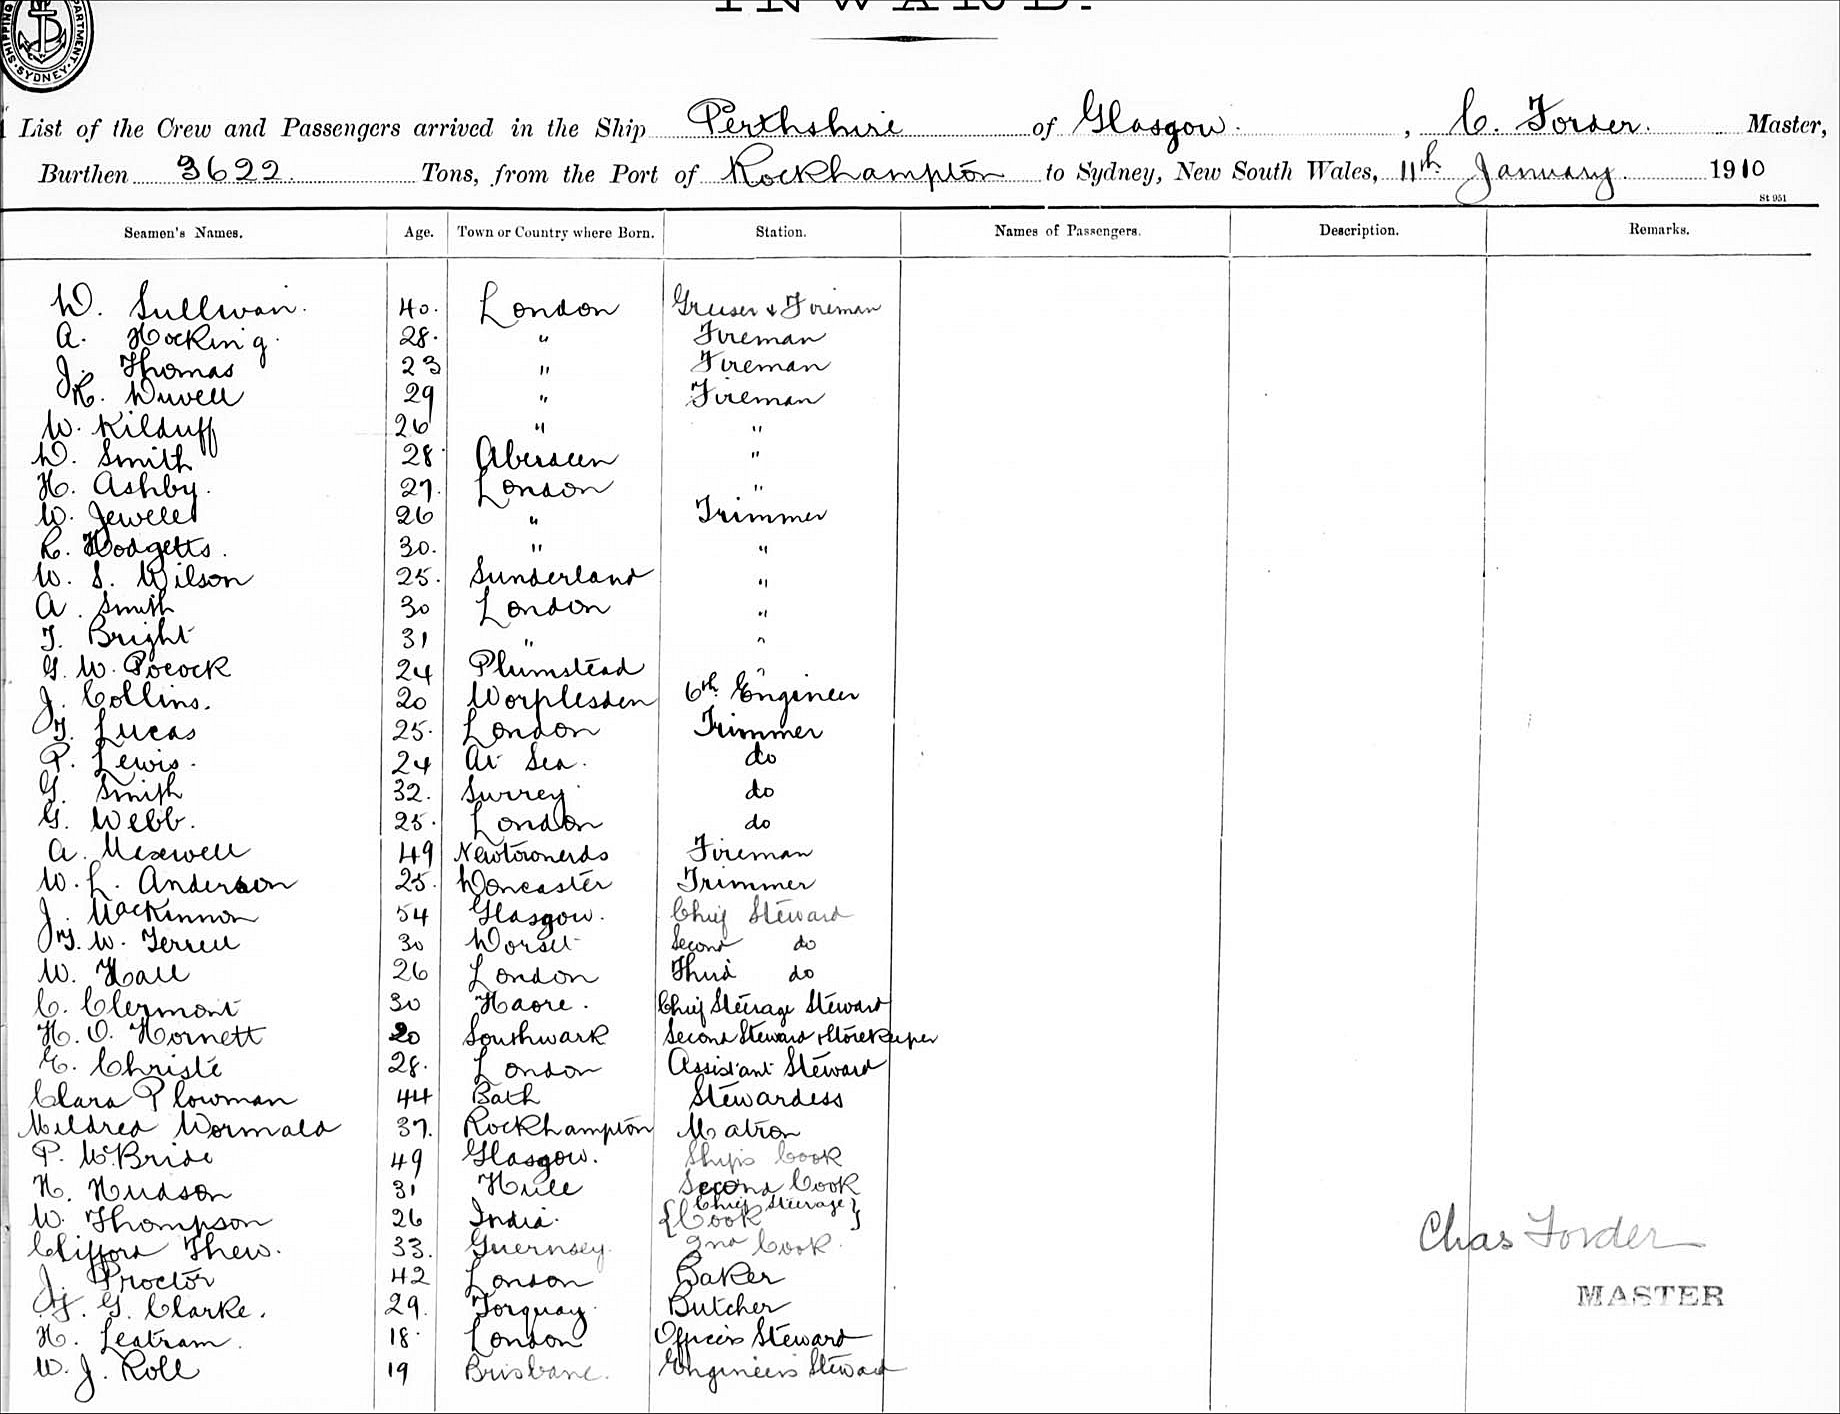 INWARD.
SHIPPING DEPARTMENT SYDNEY
List of the Crew and Passengers arrived in the Ship Perthshire of Glasgow. , C. Forder. Master,
Burthen 3622 Tons, from the Port of Rockhampton to Sydney, New South Wales, 11th January 1910
St 951
Seamen's Names. Age. Town or Country where Born. Station. Names of Passengers. Description. Remarks.
D. Sullivan. 40. London Greaser & Fireman
A. Hocking. 28. " Fireman
J. Thomas 23 " Fireman
R. Divell 29 " Fireman
W. Kilduff 26 " "
D. Smith 28 Aberdeen "
H. Ashby. 27. London "
W. Jewell 26 " Trimmer
R. Hodgetts. 30. " "
W. S. Wilson 25. Sunderland "
A. Smith 30 London "
T. Bright 31 " "
G. W. Pocock 24 Plumstead "
J. Collins. 20 Worplesden 6th Engineer
T. Lucas 25. London Trimmer
P. Lewis. 24 At Sea. do
G. Smith 32. Surrey do
G. Webb. 25. London do
A. Mexwell 49 Newtownerds Fireman
W. L. Anderson 25. Doncaster Trimmer
J. MacKinnon 54 Glasgow. Chief Steward
T. W. Terrell 30 Dorset Second do
W. Hall 26 London Third do
C. Clermont 30 Havre. Chief Steerage Steward
H. O. Hornett 20 Southwark Second Steward & Storekeeper
E. Christe 28. London Assistant Steward
Clara Plowman 44 Bath Stewardess
Mildred Wormald 37. Rockhampton Matron
P. McBride 49 Glasgow. Ships Cook
H. Hudson 31 Hull Second Cook
W. Thompson 26 India. {Chief Steerage Cook}
Clifford Thew. 33. Guernsey. 2nd Cook.
Chas Forder
J. Proctor 42 London Baker
MASTER
F. G. Clarke. 29. Torquay. Butcher
H. Leatram. 18. London Officers Steward
W. J. Roll 19 Brisbane. Engineers Steward